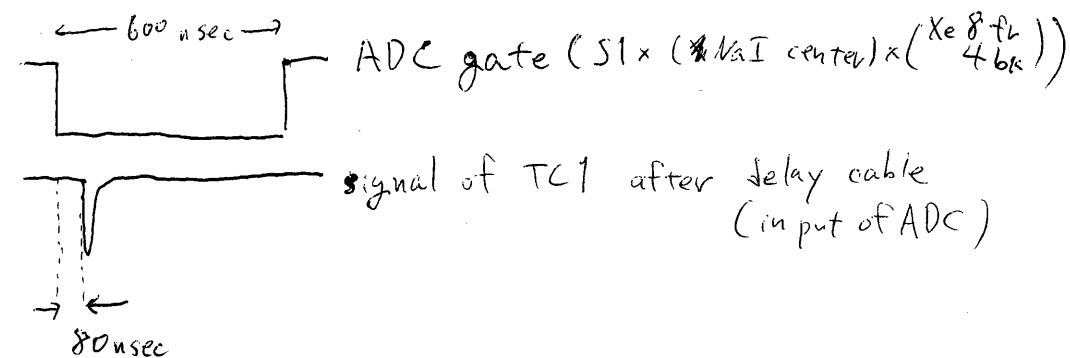 600 nsec
ADC gate (S1 × (NaI center) × (Xe 8 fr
4 bk))
signal of TC1 after delay cable
(input of ADC)
80 nsec